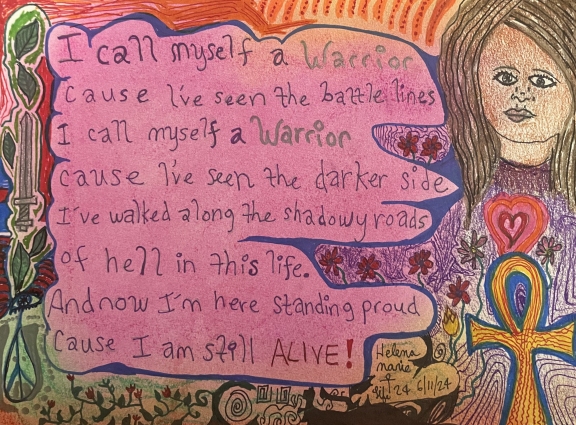 I call myself a Warrior
Cause I've seen the battle lines
I call myself a Warrior
cause I've seen the darker side
I've walked along the shadowy roads
of hell in this life.
And now I'm here standing proud
Cause I am still ALIVE!
Helena
marie
'24 6/11/24